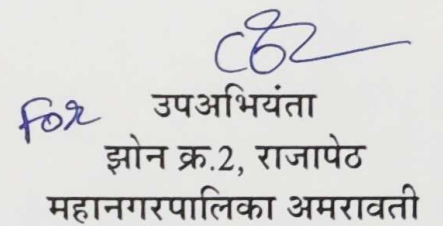 For उपअभियंता
झोन क्र.2, राजापेठ
महानगरपालिका अमरावती